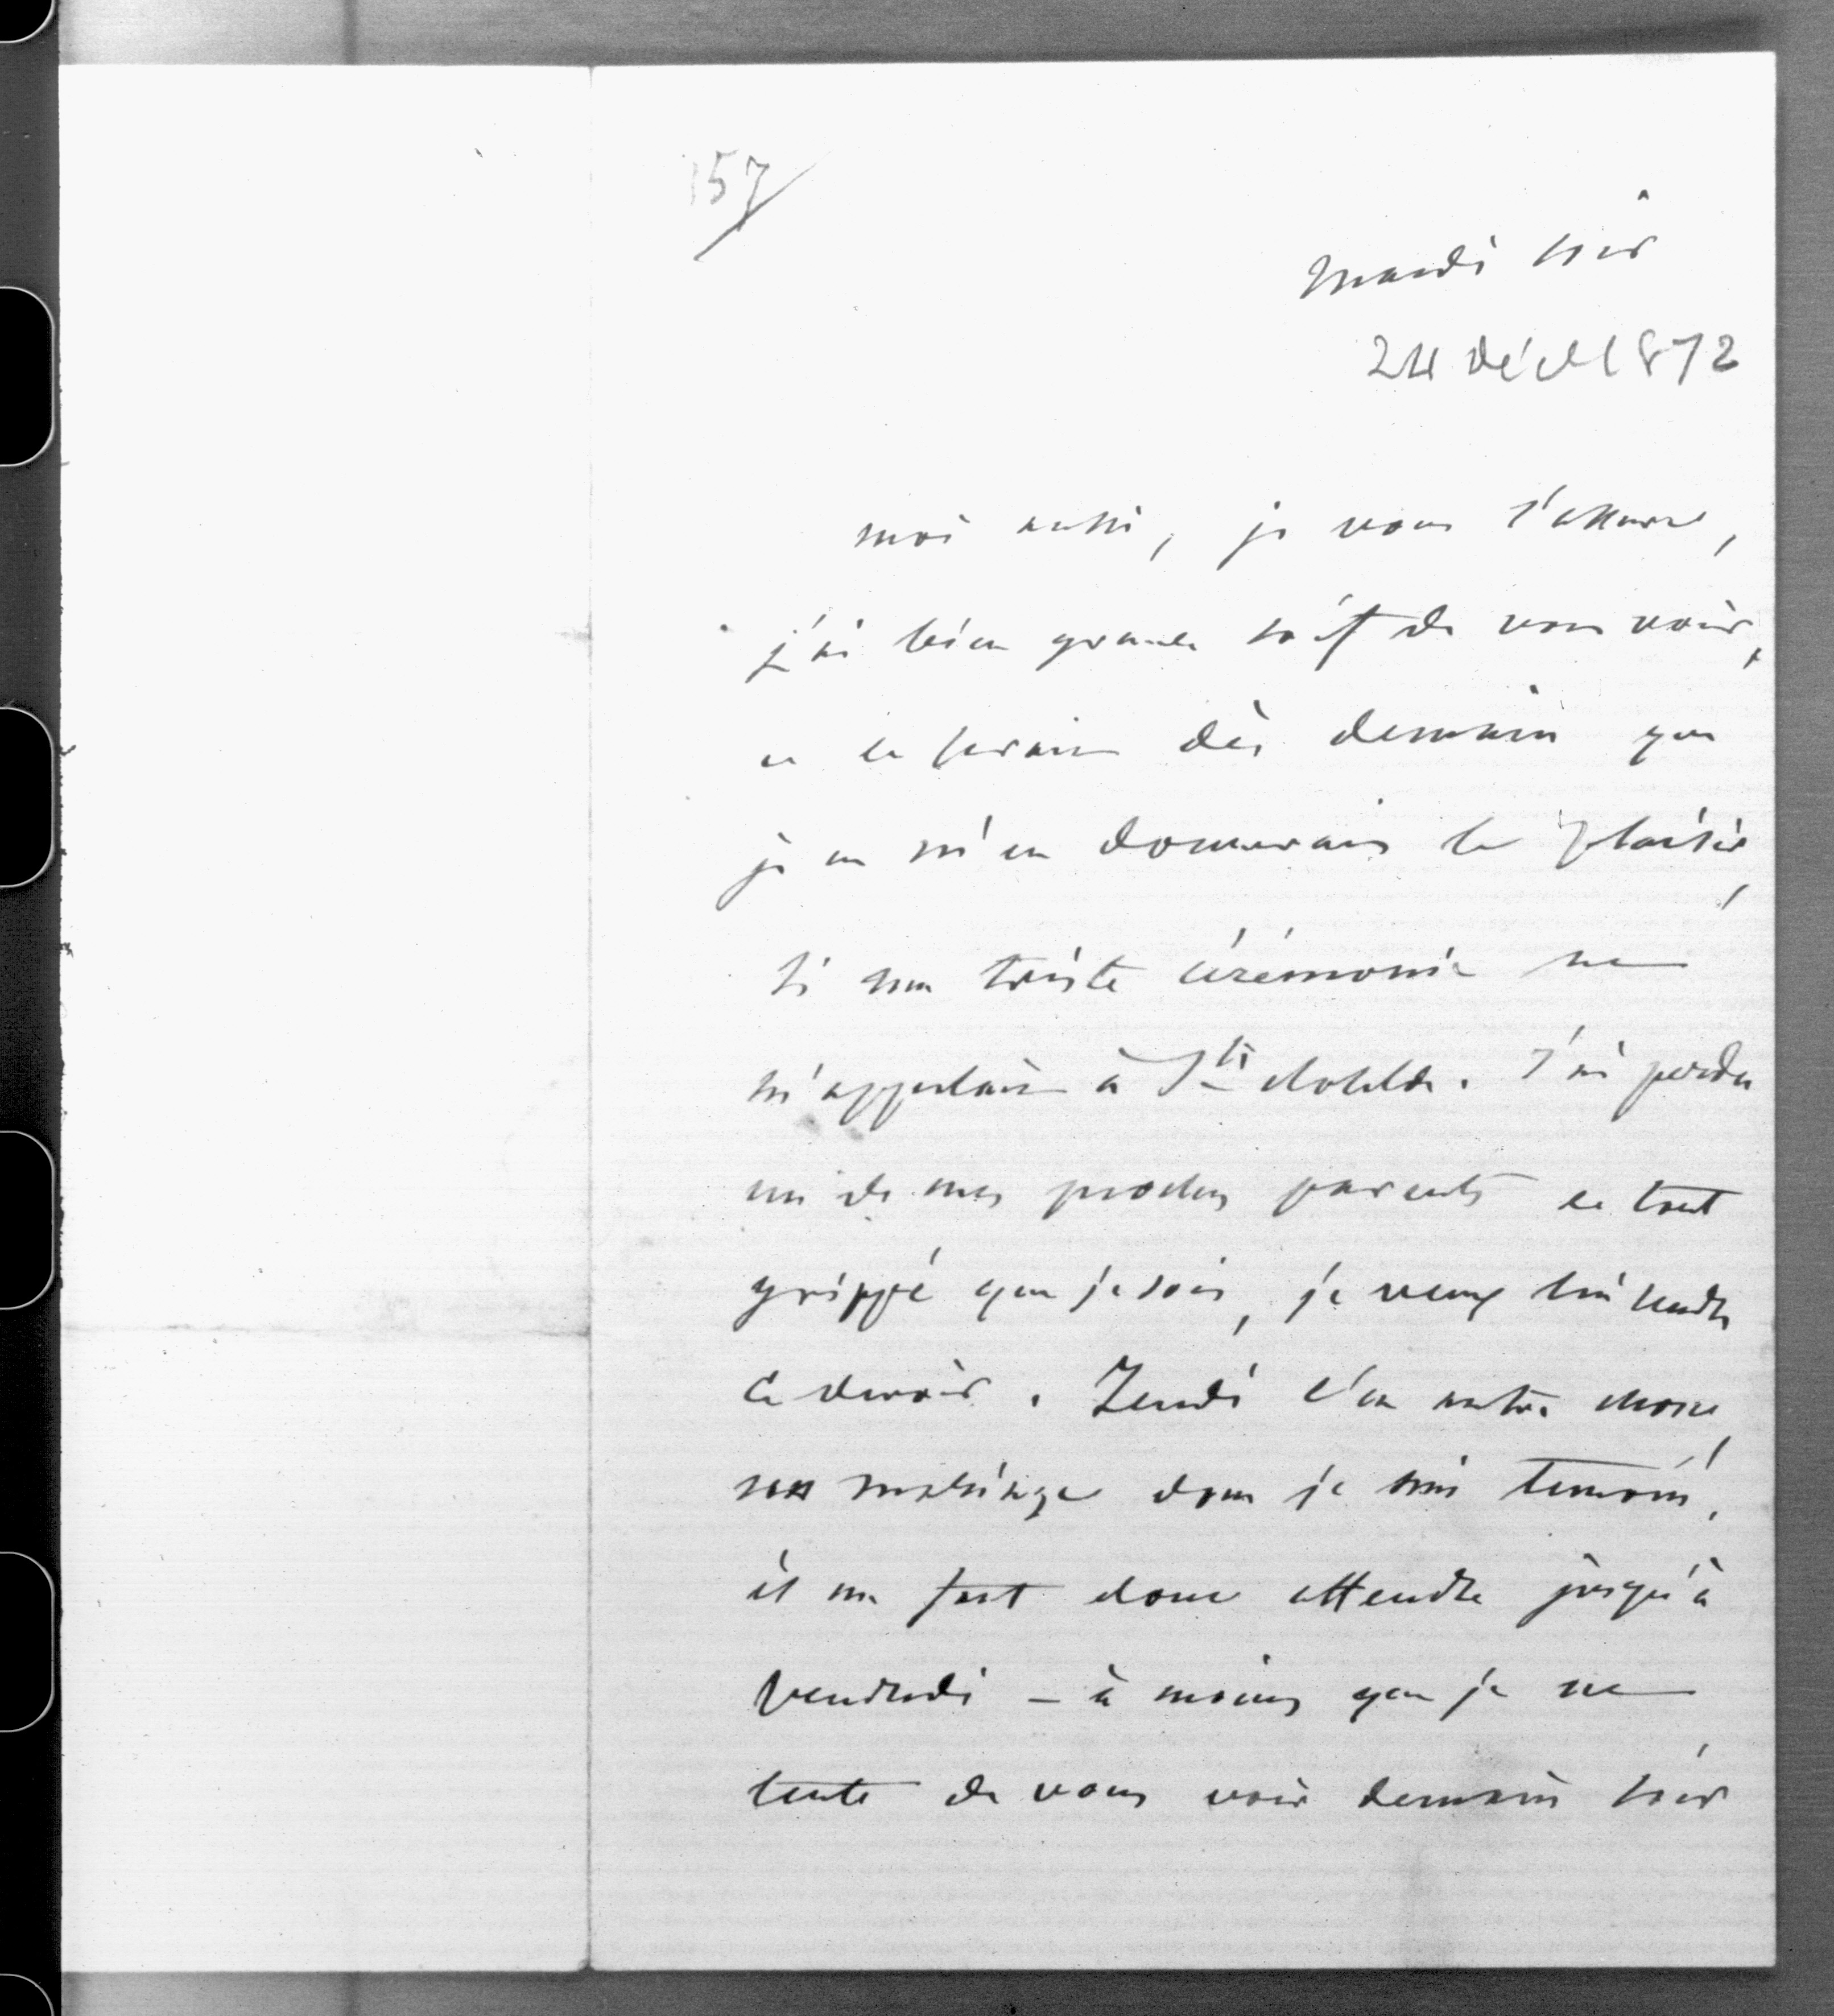 157
Mardi soir
24 déc 1872
moi aussi, je vous l'assure,
j'ai bien grande soif de vous voir,
et ce serait dès demain que
je m'en donnerais le plaisir,
si une triste cérémonie ne
m'appelait à Ste Clotilde. J'ai perdu
un de mes proches parents et tout
grippé que je sois, je veux lui rendre
ce devoir. Jeudi c'est autre chose,
un mariage dont je suis témoin,
il me faut donc attendre jusqu'à
vendredi – à moins que je ne
tente de vous voir demain soir